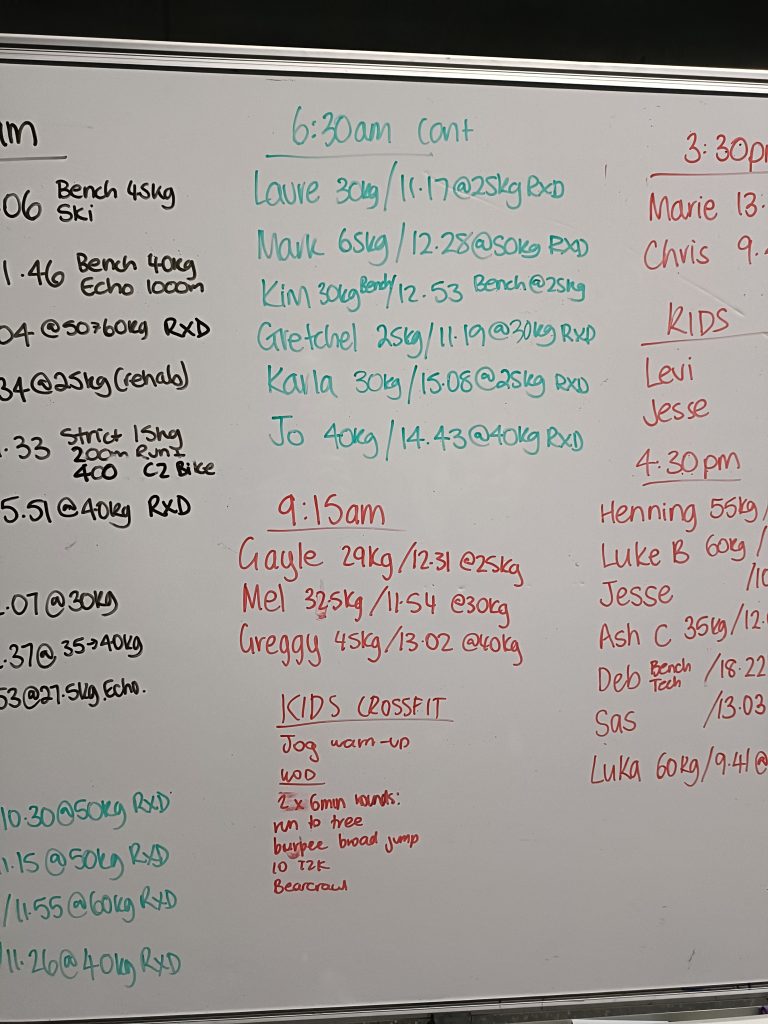 am
06 Bench 45kg
Ski
1.46 Bench 40kg
Echo 1000m
04 @50→60kg RXD
34@25kg (rehab)
.33 Strict 15kg
200m Run
400 C2 Bike
5.51 @40kg RXD
.07@30kg
.37@ 35→40kg
53@27.5kg Echo.
10.30@50kg RXD
1.15@50kg RXD
/11.55@60kg RXD
/11.26@40kg RXD
6:30am Cont
Laure 30kg/11.17@25kg RXD
Mark 65kg/12.28@50kg RXD
Kim 30kg Bench/12.53 Bench@25kg
Gretchel 25kg/11.19@30kg RXD
Karla 30kg/15.08@25kg RXD
Jo 40kg/14.43@40kg RXD
9:15am
Gayle 29kg/12.31 @25kg
Mel 32.5kg/11.54 @30kg
Greggy 45kg/13.02 @40kg
KIDS CROSSFIT
Jog warm-up
WOD
2 x 6min rounds:
run to tree
burpee broad jump
10 T2K
Bearcrawl
3:30p
Marie 13.
Chris 9.
KIDS
Levi
Jesse
4:30pm
Henning 55kg/
Luke B 60kg/
Jesse /10
Ash C 35kg/12.
Deb Bench Tech /18.22
Sas /13.03
Luka 60kg/9.41@